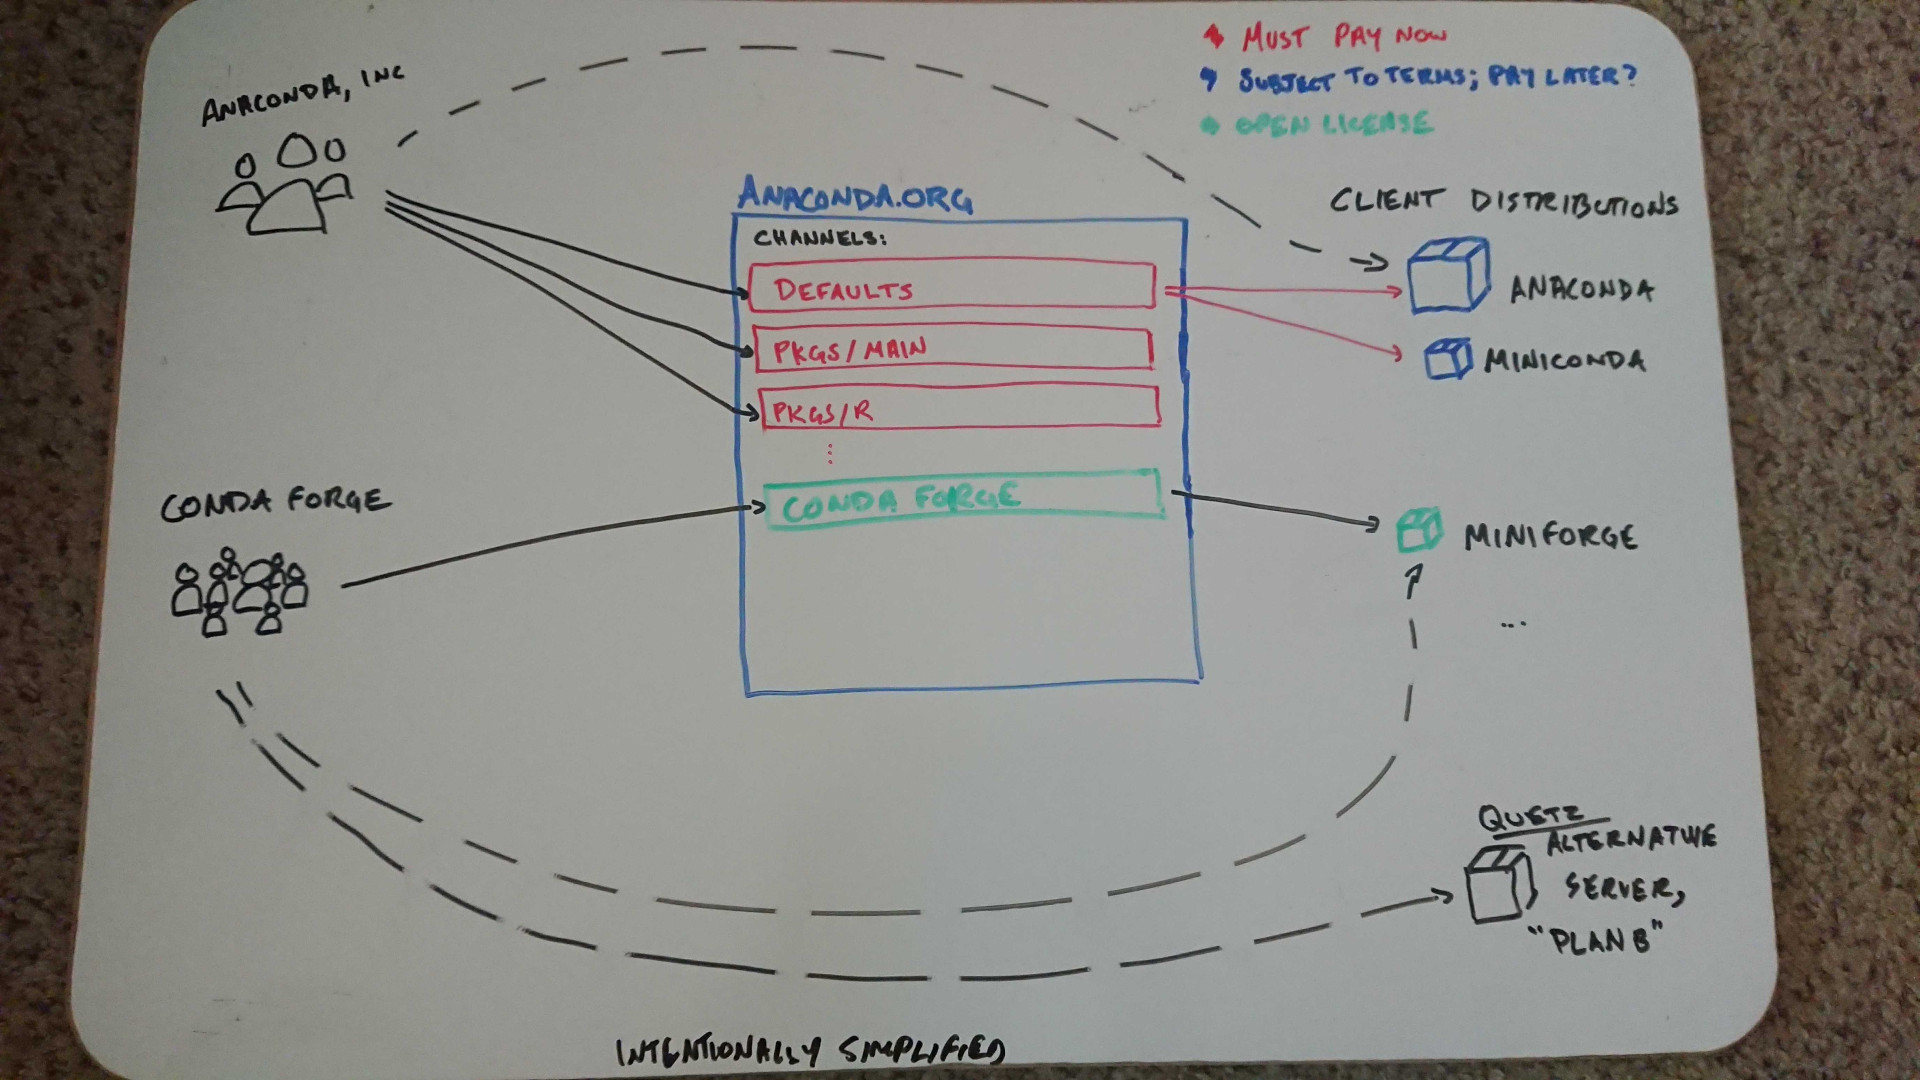 MUST PAY NOW
SUBJECT TO TERMS; PAY LATER?
OPEN LICENSE
ANACONDA, INC
ANACONDA.ORG
CHANNELS:
DEFAULTS
PKGS/MAIN
PKGS/R
⋮
CONDA FORGE
CLIENT DISTRIBUTIONS
ANACONDA
MINICONDA
CONDA FORGE
MINIFORGE
...
QUETZ
ALTERNATIVE
SERVER,
"PLAN B"
INTENTIONALLY SIMPLIFIED